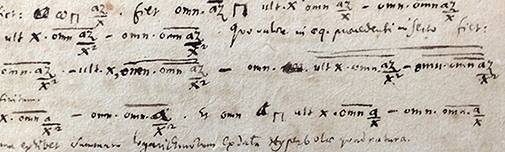 az/x . fiet omn. az/x ⊓ ult x. omn az/x² − omn. omn az/x²
ult x. omn az/x² − omn. omn az/x² Quo valore in eq. praecedenti inserto fiet:
omn. az/x² . ult. x, omn. omn az/x² − omn. ult x. omn. az/x² − omn. omn az/x²
x. omn a/x² − omn. omn. a/x² . Et omn ⊓ ult x omn a/x − omn. omn. a/x
exhibet summam logarithmorum ex data Hyperbolae quadratura.